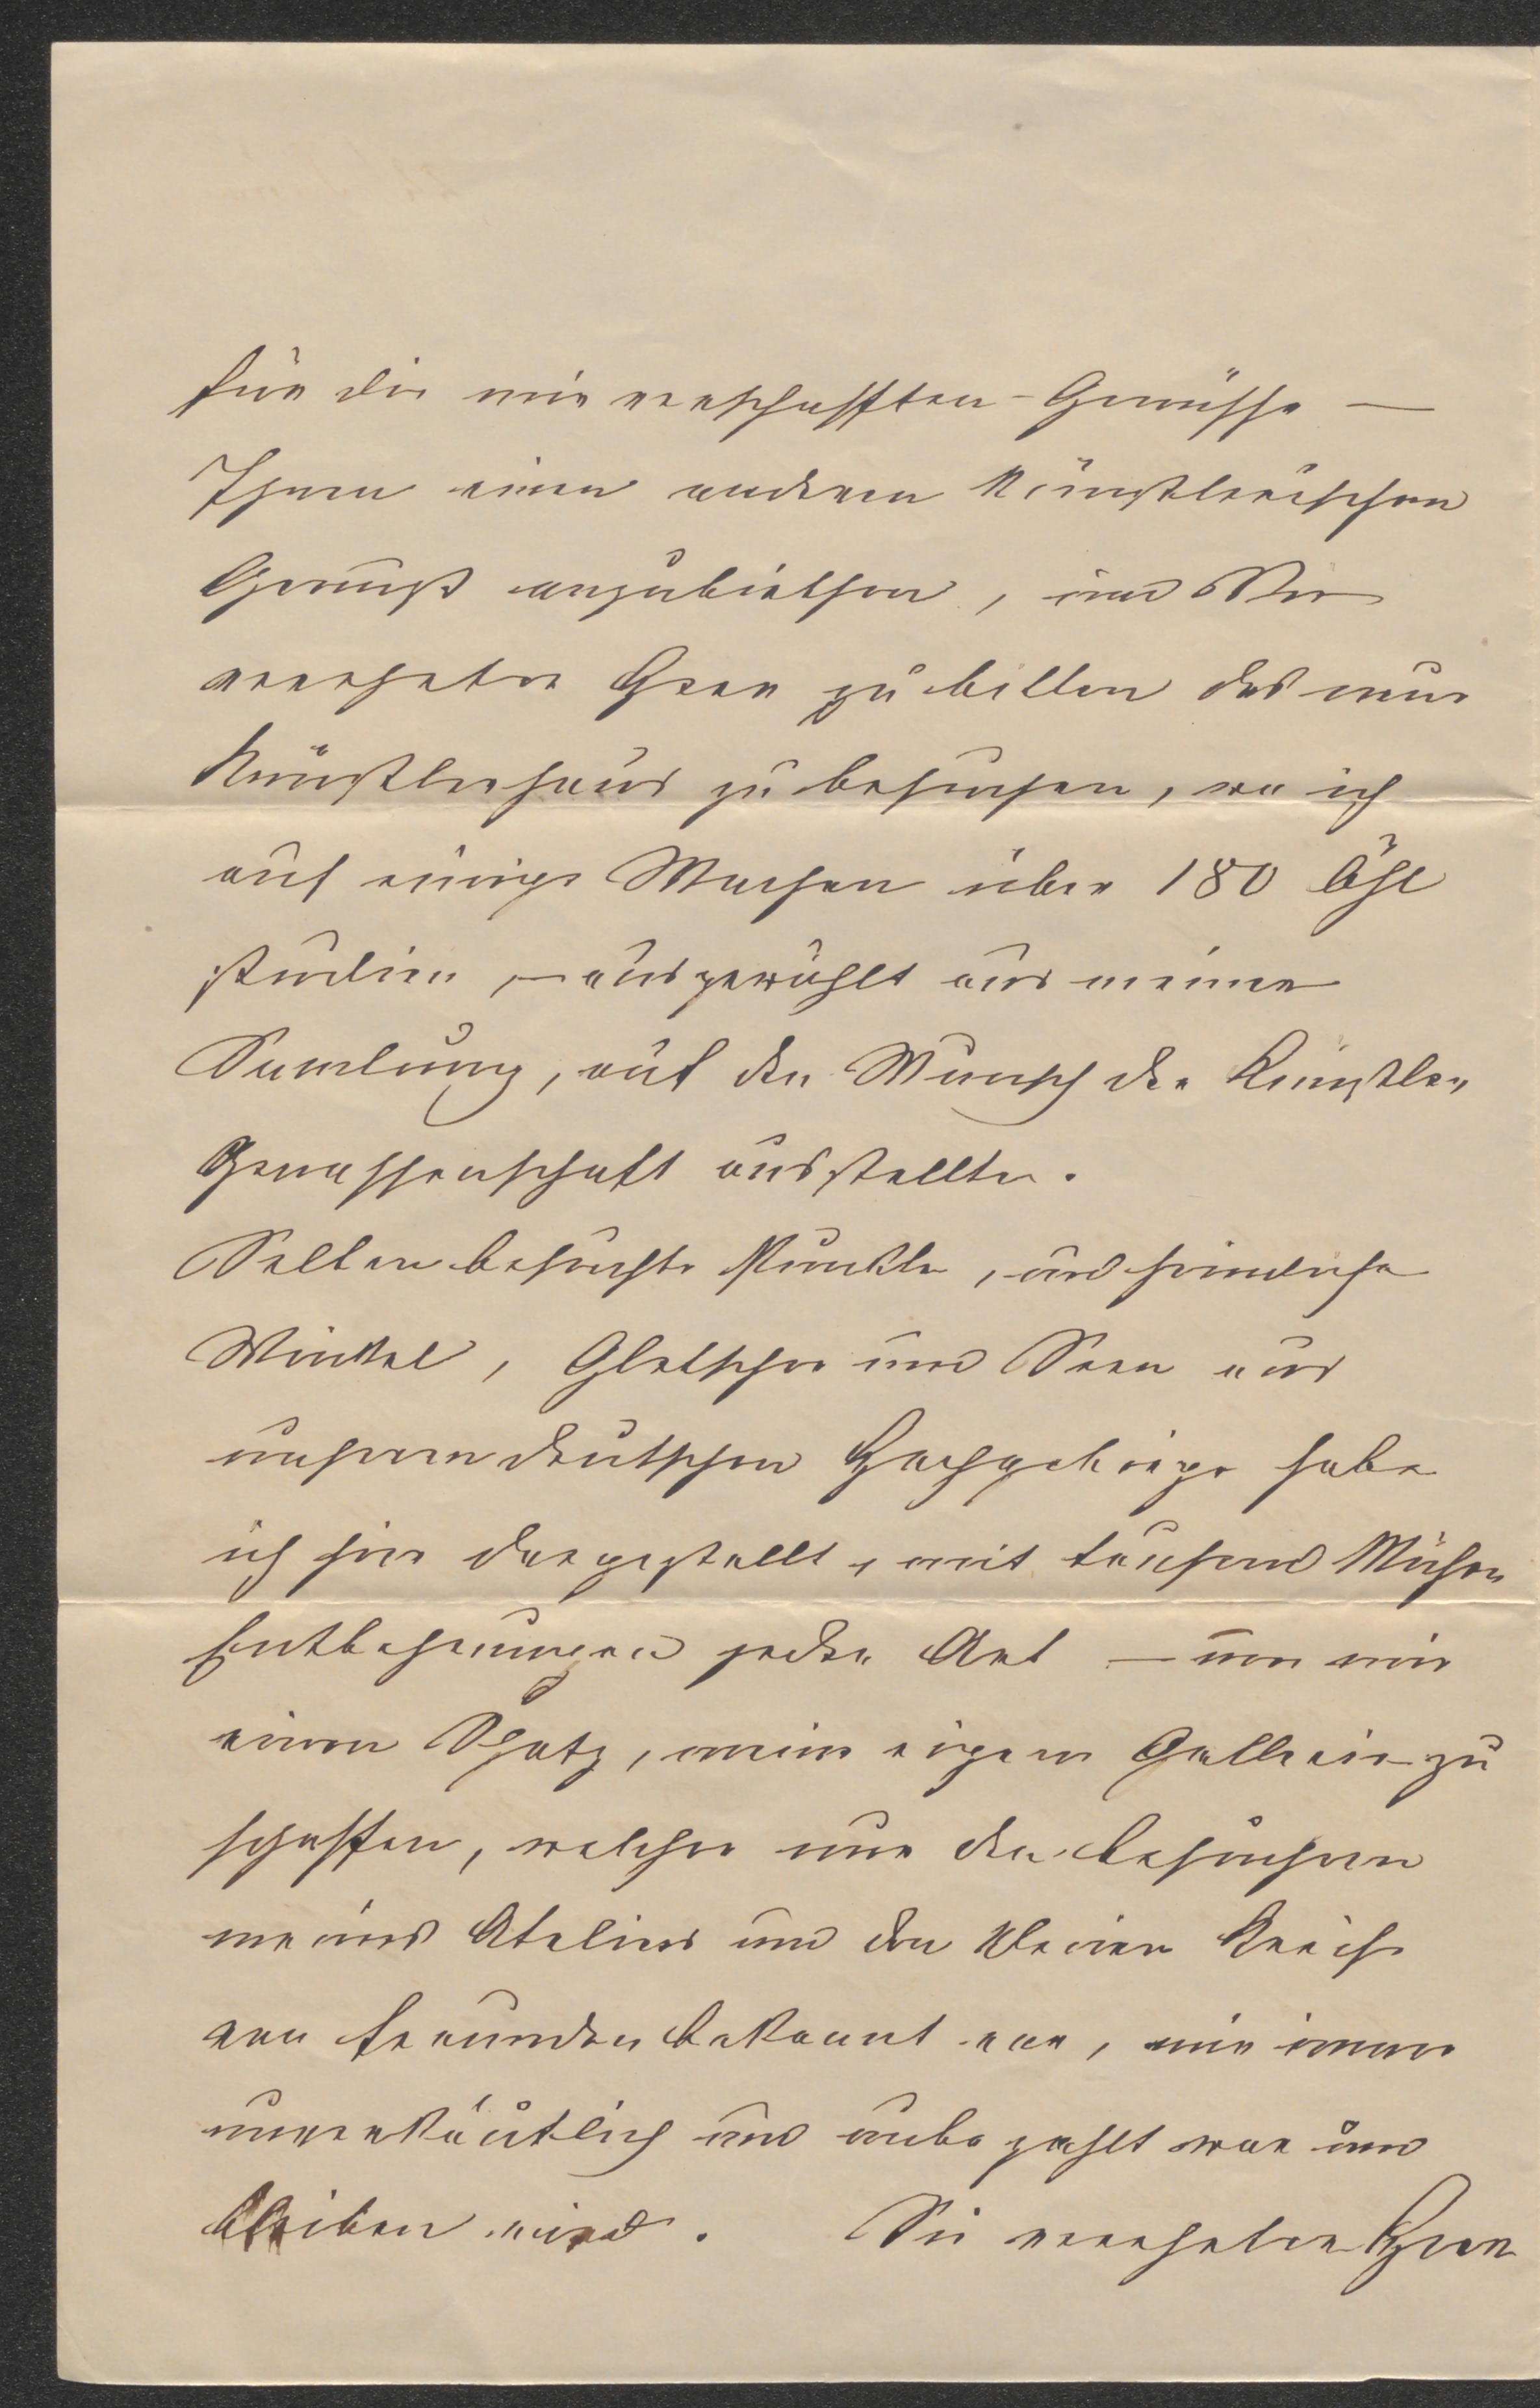 für die mir verschafften Genüsse —
Ihnen einen anderen künstlerischen
Genuß anzubiethen, und Sie
verehrter Herr zu bitten das neue
Künstlerhaus zu besuchen, wo ich
auf einige Wochen über 180 Öhl
studien, – ausgewählt aus meiner
Samlung, auf den Wunsch der Künstler
Genossenschaft ausstellte.
Selten besuchte Punkte, und heimliche
Winkel, Gletscher und Seen aus
unseren deutschen Hochgebirge habe
ich hier dargestellt, mit tausend Mühen
Entbehrungen jeder Art — um mir
einen Schatz, meine eigene Gallerie zu
schaffen, welcher nur den Besuchern
meines Ateliers und den kleinen Kreise
von Freunden bekannt war, mir immer
unverkäuflich und unbezahlt war und
bleiben wird. Sie verehrter Herr